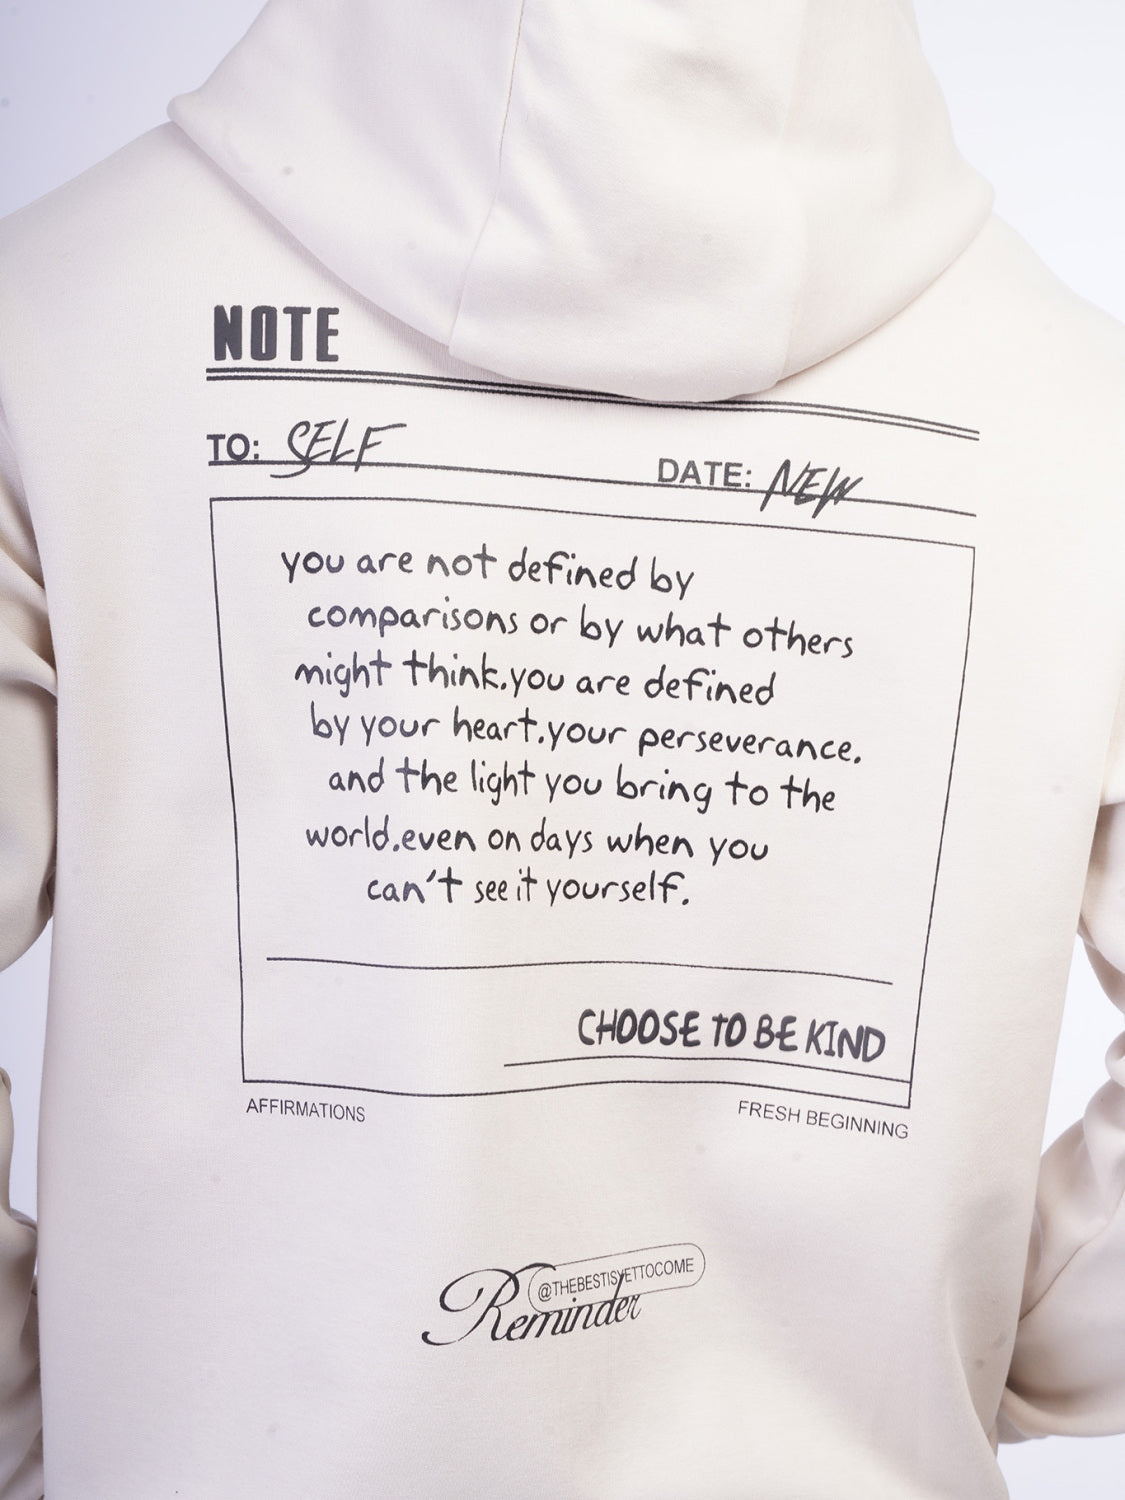 NOTE
TO: SELF
DATE: NEW
you are not defined by
comparisons or by what others
might think.you are defined
by your heart.your perseverance.
and the light you bring to the
world.even on days when you
can't see it yourself.
CHOOSE TO BE KIND
AFFIRMATIONS
FRESH BEGINNING
@THEBESTISYETTOCOME
Reminder